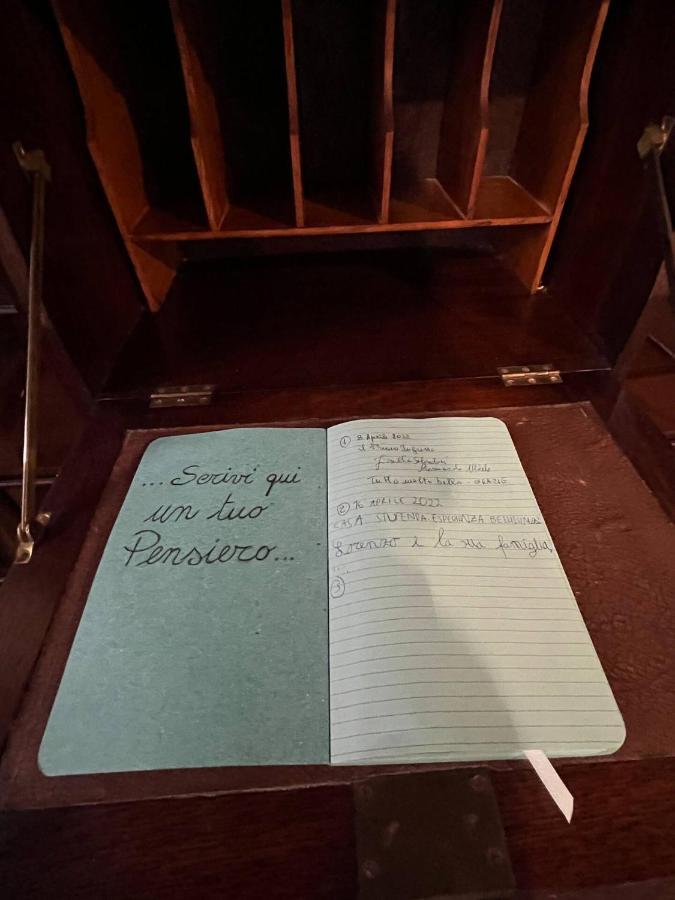 ... Scrivi qui
un tuo
Pensiero...
① 8 Aprile 2022
Tutto molto bello - GRAZIE
② 16 APRILE 2022
CASA STUPENDA. ESPERIENZA BELLISSIMA
Lorenzo e la sua famiglia
...
③